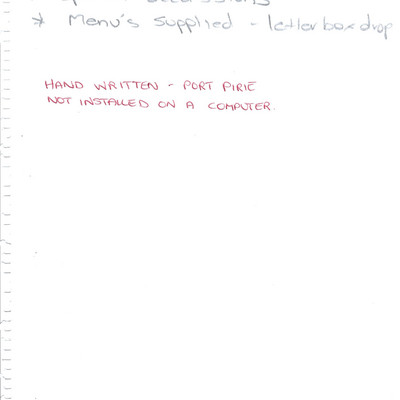 * Menu's supplied - letterbox drop
HAND WRITTEN - PORT PIRIE
NOT INSTALLED ON A COMPUTER.